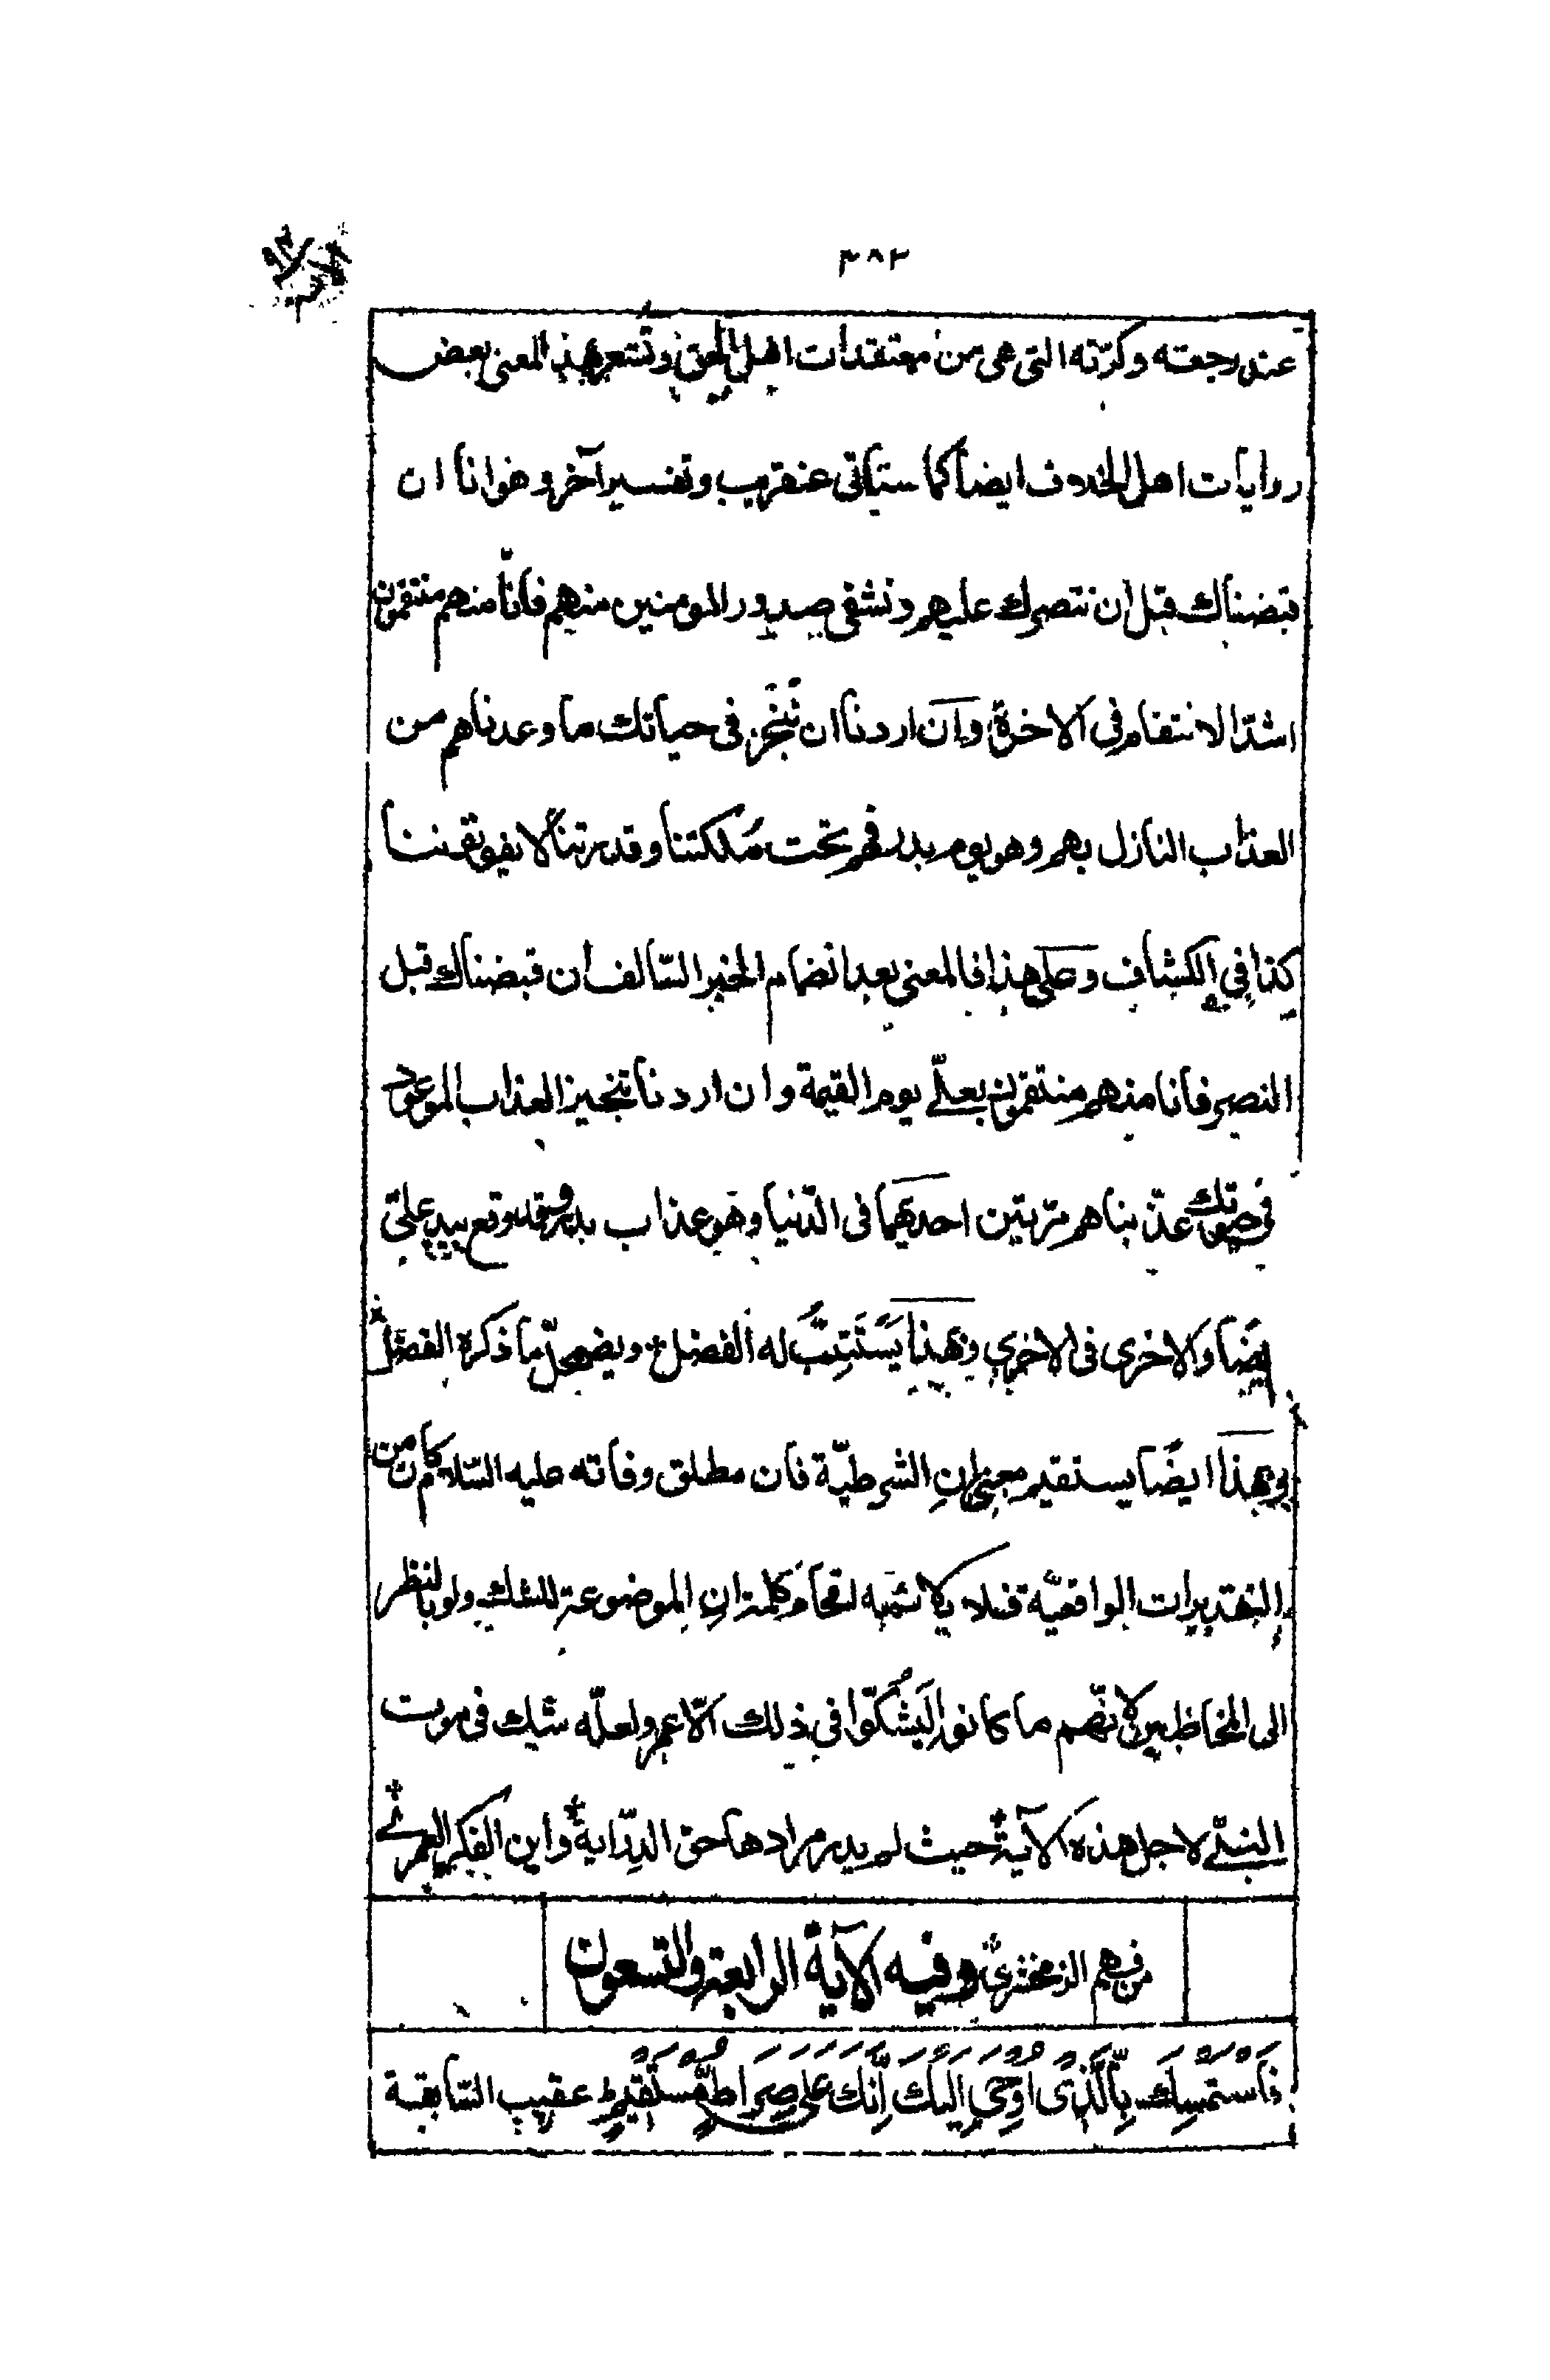 ٣٨٢
عند رجعته وكرّته التى هى من معتقدات اهل الحق وتُشعر بهذا المعنى بعض
روايات اهل الخلاف ايضاً كما ستاتى عنقريب وتفسير آخر وهو انا ان
قبضناك قبل ان ننصرك عليهم ونشفى صدور المومنين منهم فانّا منهم منتقمون
اشدّ الانتقام فى الاخرة وان اردنا ان نُنجَز فى حياتك ما وعدناهم من
العذاب النازل بهم وهو يوم بدر فهم تحت مُلكتنا وقدرتنا لا يفوتوننا
كذا فى الكشاف وعلى هذا فالمعنى بعد انضمام الخبر السّالف ان قبضناك قبل
النصر فانا منهم منتقمون بعلىّ يوم القيمة وان اردنا تنجيز العذاب الموعود
فى حيوتك عذّبناهم مرّتين احديهما فى الدّنيا وهو عذاب بدر وقد وقع بيد علىّ
ايضًا والاخرى فى الاخرى وبهذا يَستَتِبُّ له الفضل ويضمحلّ ما ذكره الفضل
وبهذا ايضًا يستقيم معنى ان الشرطيّة فان مطلق وفاته عليه السّلام كان من
التقديرات الواقعيّة فلا يلائمه اقحام كلمة ان الموضوعة للشك ولو بالنظر
الى المخاطبين لانّهم ما كانوا لَيَشُكّوا فى ذلك الّا عمر ولعلّه شك فى موت
النبىّ لاجل هذه الآية حيث لم يدر مرادها حق الدِّراية واين الفكر العمرى
من فهم الزمخشرى وفيه الآية الرابعة والتسعون
فَاسْتَمْسِكْ بِالَّذِى اُوْحِىَ اِلَيْكَ اِنَّكَ عَلى صِرَاطٍ مُّسْتَقِيْمٍ عقيب السّابقة